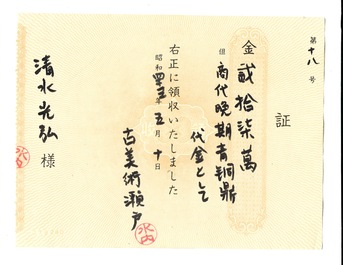 第十八号
証
金貳拾柒萬
但 商代晩期青铜鼎
代金として
右正に領収いたしました
昭和四三年五月十日
古美術瀬戸
清水光弘様